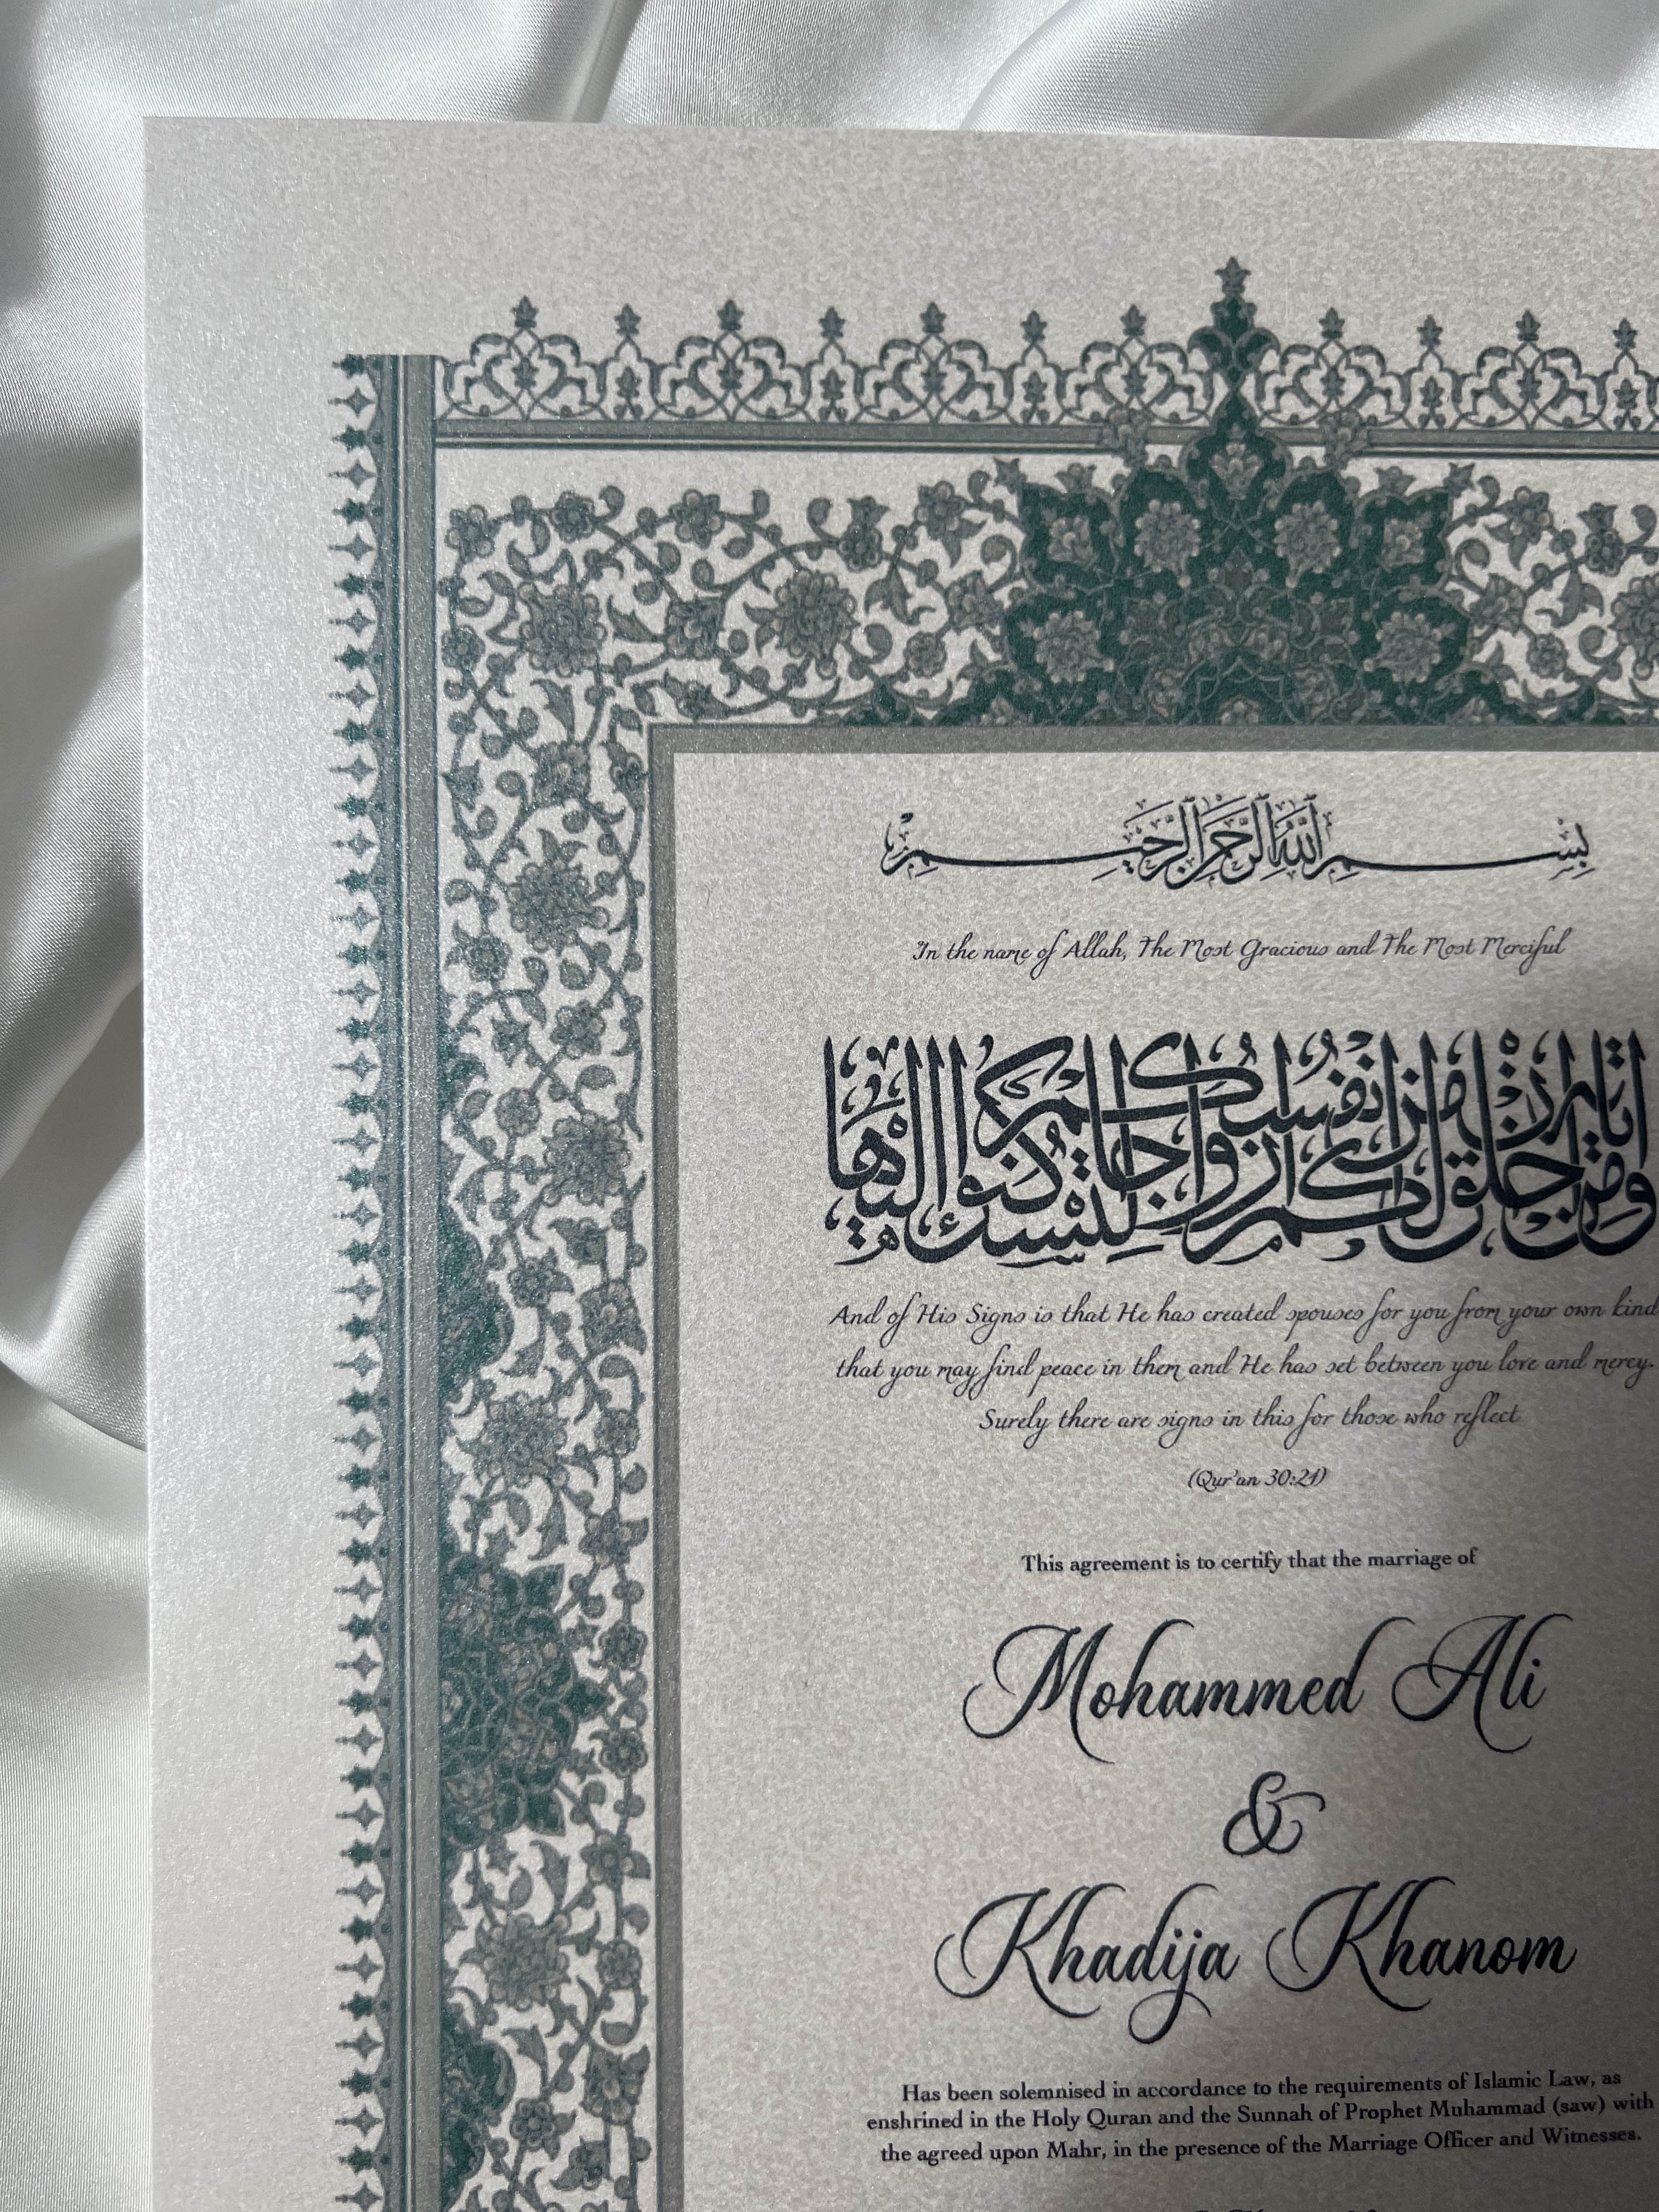 بِسْمِ اللَّهِ الرَّحْمَنِ الرَّحِيمِ
In the name of Allah, The Most Gracious and The Most Merciful
ومن آياته أن خلق لكم من أنفسكم أزواجا لتسكنوا إليها
And of His Signs is that He has created spouses for you from your own kind
that you may find peace in them and He has set between you love and mercy.
Surely there are signs in this for those who reflect
(Qur'an 30:21)
This agreement is to certify that the marriage of
Mohammed Ali
&
Khadija Khanom
Has been solemnised in accordance to the requirements of Islamic Law, as
enshrined in the Holy Quran and the Sunnah of Prophet Muhammad (saw) with
the agreed upon Mahr, in the presence of the Marriage Officer and Witnesses.